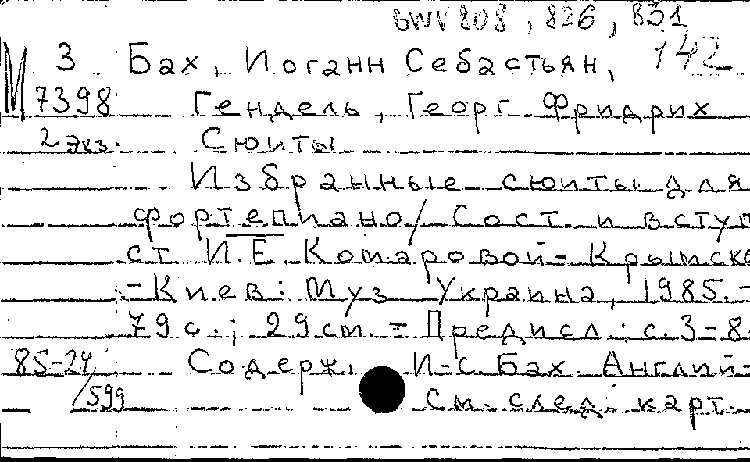 BWV 808, 826, 831
М 3 Бах, Иоганн Себастьян, 142
7398 Гендель, Георг Фридрих
2 экз. Сюиты
Избранные сюиты для
фортепиано / Сост. и вступ
ст И.Е. Комаровой-Крымско
- Киев: Муз Украина, 1985. -
79 с.; 29 см. = Предисл.: с. 3-8
85-24/599 Содерж. И-С. Бах. Англий-
см. след. карт.